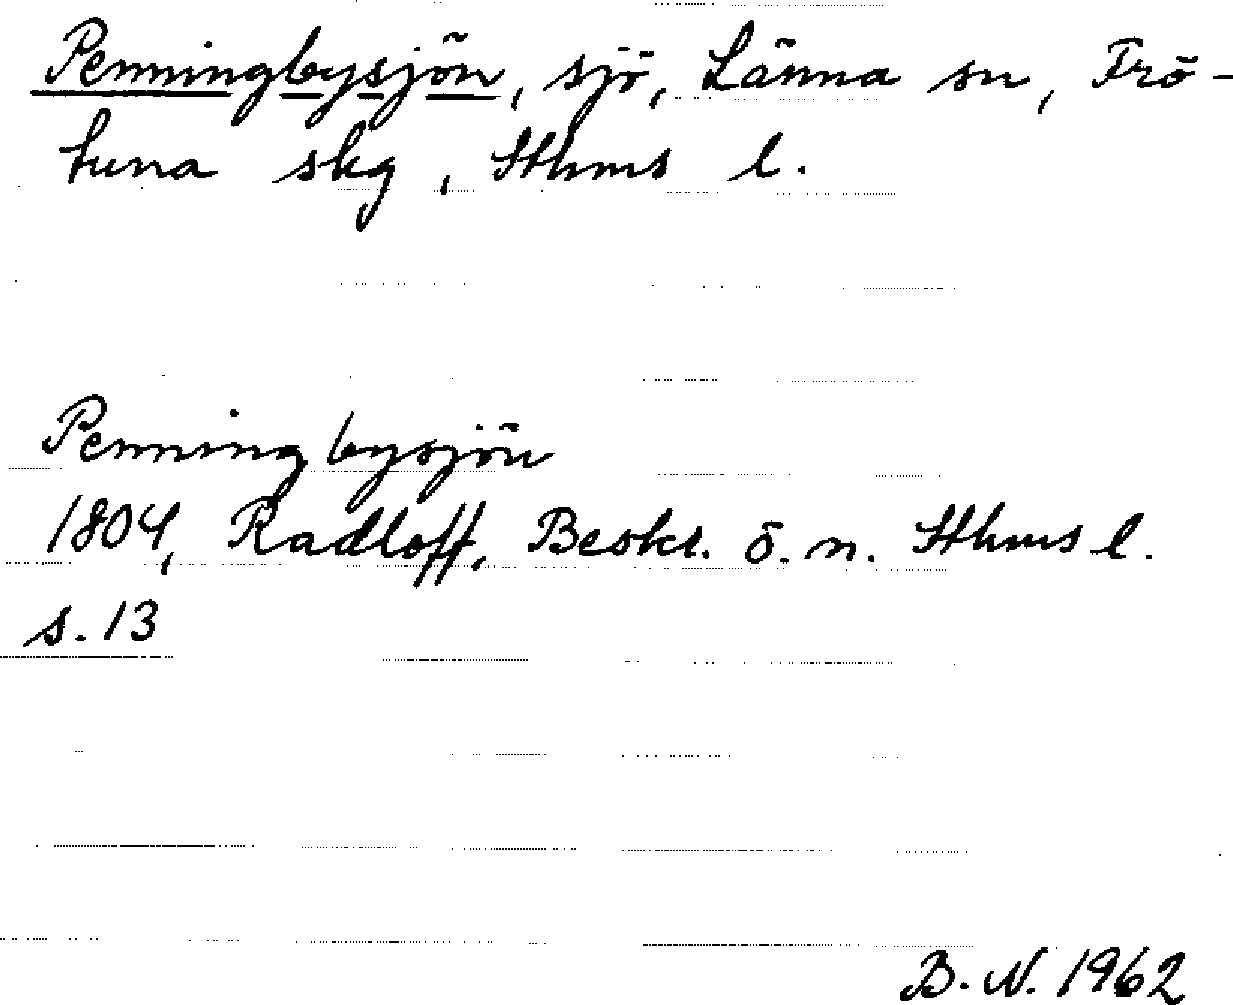 Penningbysjön, sjö, Länna sn, Frö-
tuna skg, Sthms l.
Penningbysjön
1804, Radloff, Beskr. ö. n. Sthms l.
s. 13
B. N. 1962